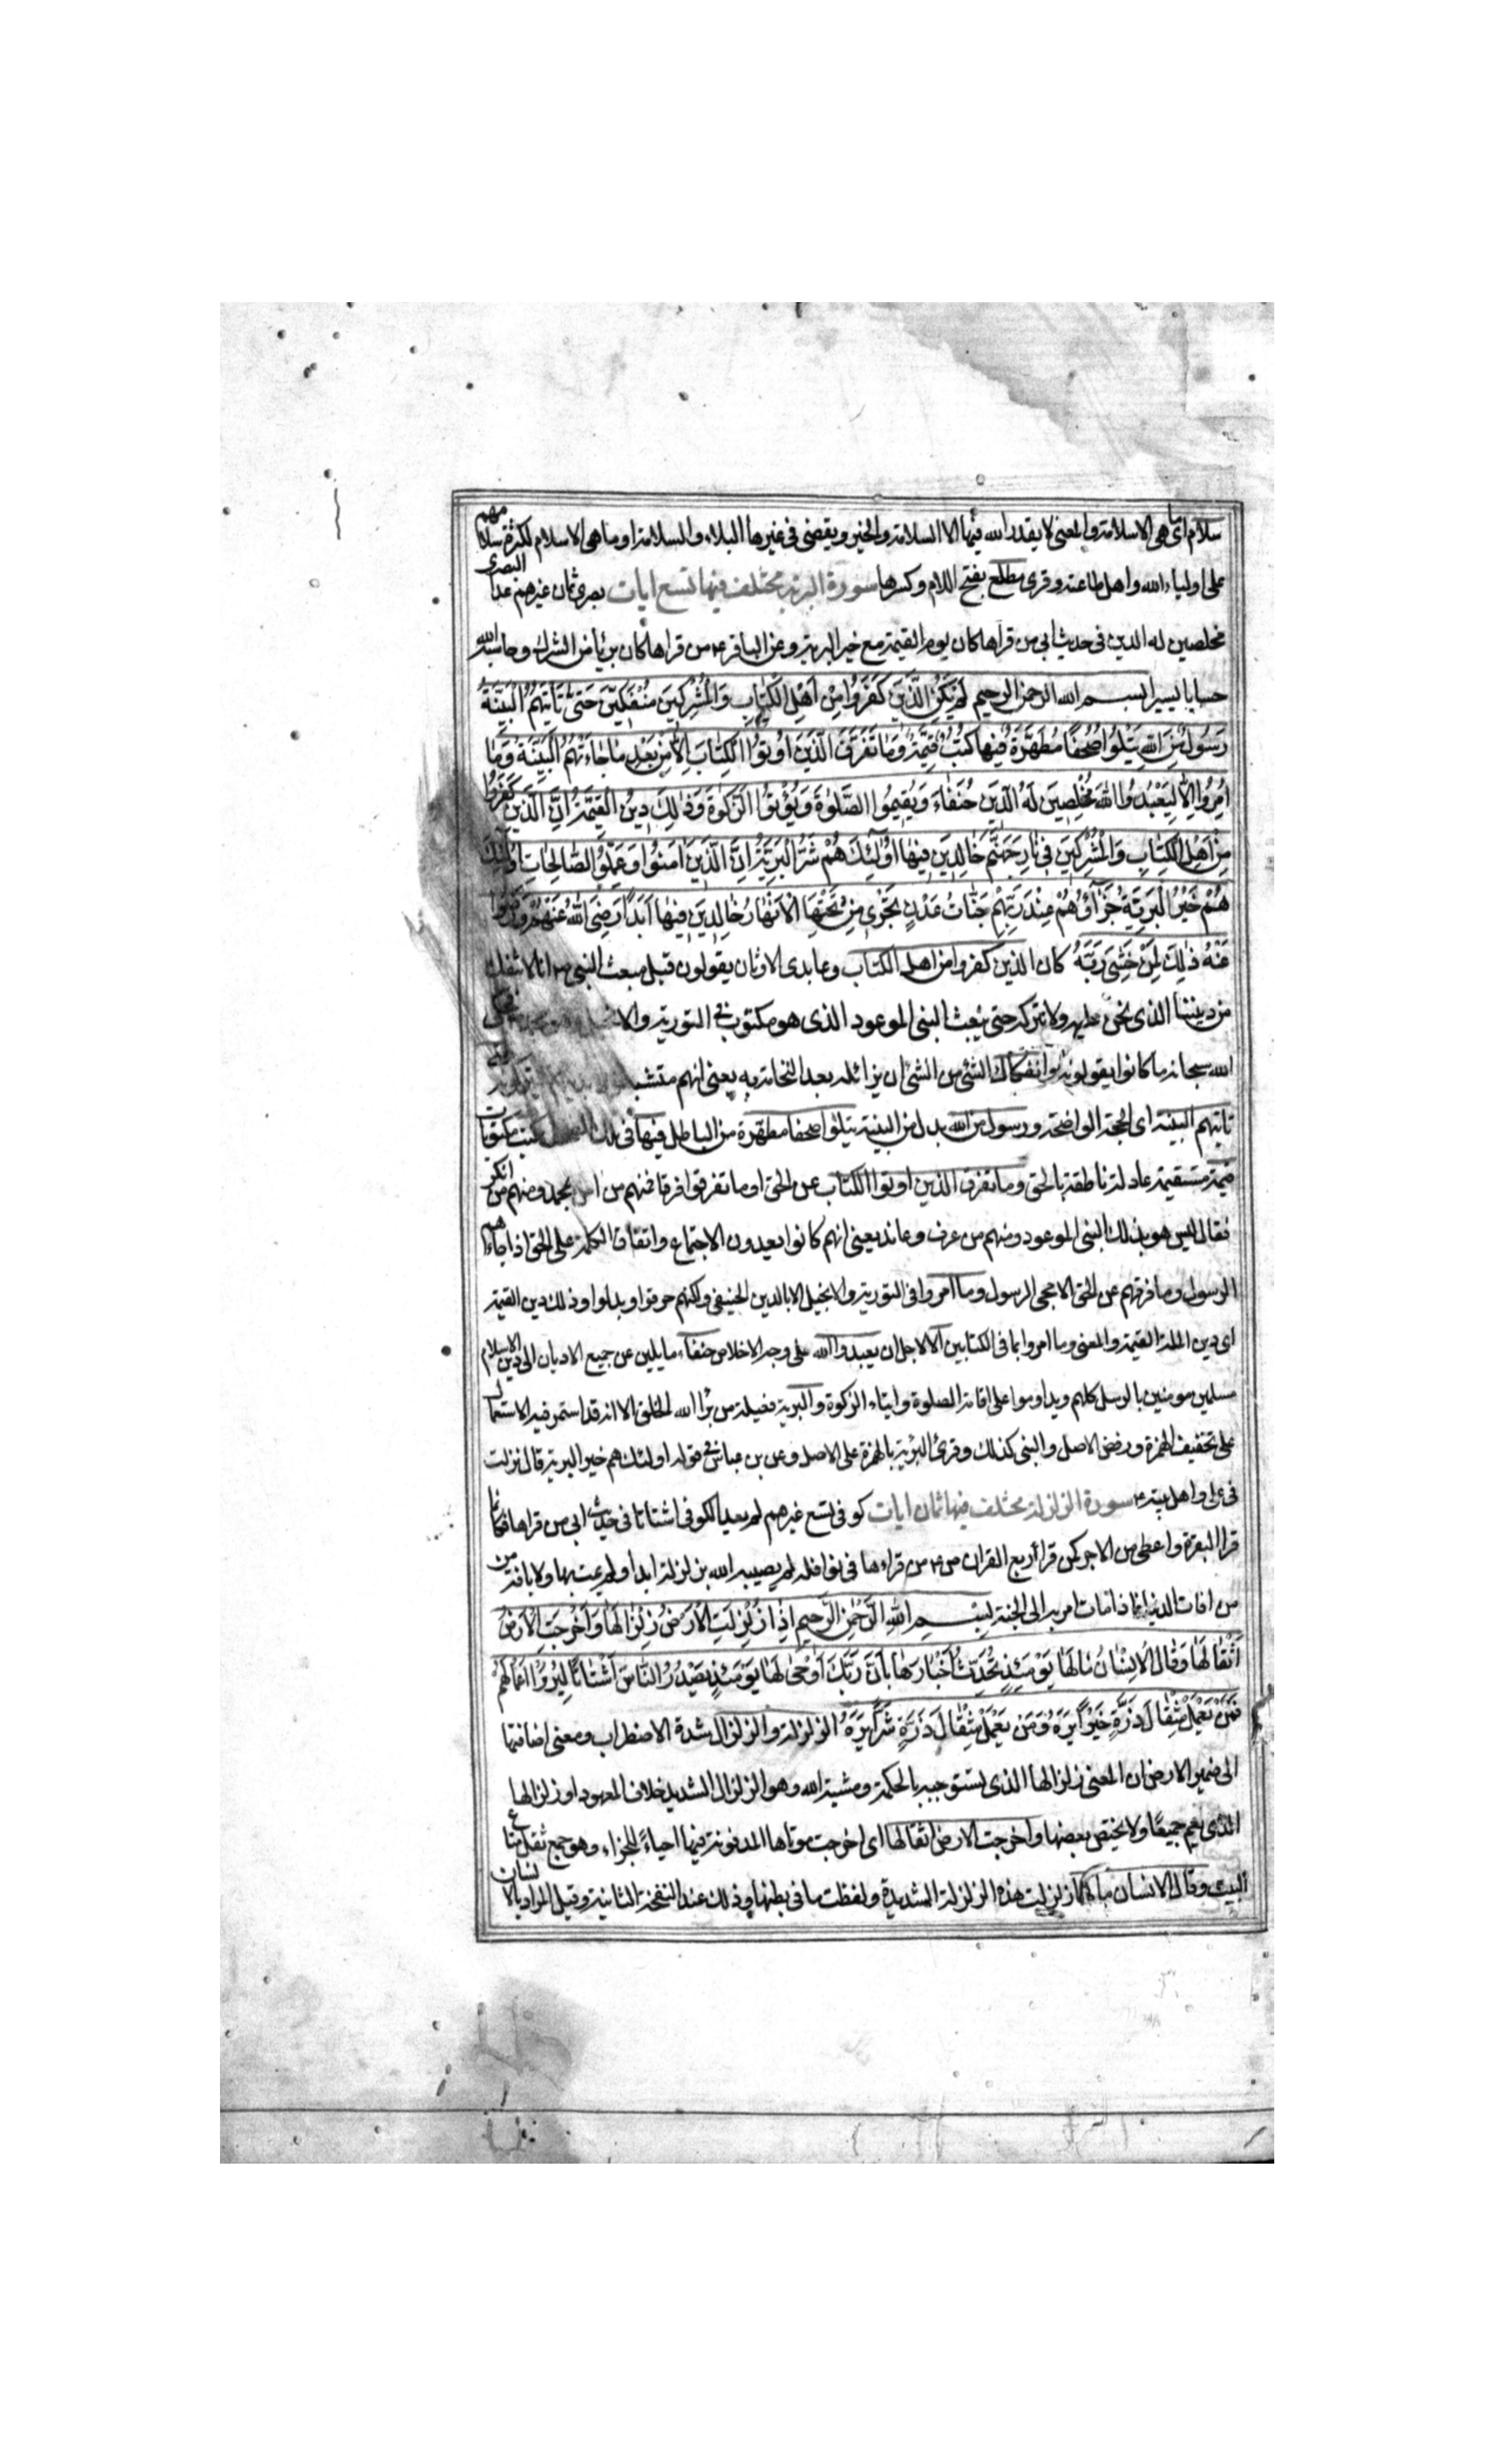 سلام اى ما هى الا سلامة والمعنى لا يقدر الله فيها الا السلامة والخير ويقضى فى غيرها البلاء والسلامة او ما هى الا سلام لكثرة سلامهم
على اولياء الله واهل طاعته وقرى مطلع بفتح اللام وكسرها سورة البرية مختلف فيها تسع ايات بصرى ثمان غيرهم عد البصرى
مخلصين له الدين فى حديث ابى من قراها كان يوم القيمة مع خير البرية وعن الباقر ع من قراها كان بريًا من الشرك وحاسبه الله
حسابا يسيرا بسم الله الرحمن الرحيم لَمْ يَكُنِ الَّذِينَ كَفَرُوا مِنْ اَهْلِ الْكِتَابِ وَالْمُشْرِكِينَ مُنْفَكِّينَ حَتّى تَاْتِيَهُمُ الْبَيِّنَةُ
رَسُولٌ مِنَ اللهِ يَتْلُوا صُحُفًا مُطَهَّرَةً فِيهَا كُتُبٌ قَيِّمَةٌ وَمَا تَفَرَّقَ الَّذِينَ اُوتُوا الْكِتَابَ اِلَّا مِنْ بَعْدِ مَا جَاءَتْهُمُ الْبَيِّنَةُ وَمَا
اُمِرُوا اِلَّا لِيَعْبُدُوا اللهَ مُخْلِصِينَ لَهُ الدِّينَ حُنَفَاءَ وَيُقِيمُوا الصَّلوٰةَ وَيُؤْتُوا الزَّكوٰةَ وَذٰلِكَ دِينُ الْقَيِّمَةِ اِنَّ الَّذِينَ كَفَرُوا
مِنْ اَهْلِ الْكِتَابِ وَالْمُشْرِكِينَ فِى نَارِ جَهَنَّمَ خَالِدِينَ فِيهَا اُولٰئِكَ هُمْ شَرُّ الْبَرِيَّةِ اِنَّ الَّذِينَ اٰمَنُوا وَعَمِلُوا الصَّالِحَاتِ اُولٰئِكَ
هُمْ خَيْرُ الْبَرِيَّةِ جَزَاؤُهُمْ عِنْدَ رَبِّهِمْ جَنَّاتُ عَدْنٍ تَجْرِى مِنْ تَحْتِهَا الْاَنْهَارُ خَالِدِينَ فِيهَا اَبَدًا رَضِىَ اللهُ عَنْهُمْ وَرَضُوا
عَنْهُ ذٰلِكَ لِمَنْ خَشِىَ رَبَّهُ كان الذين كفروا من اهل الكتاب وعابدى الاوثان يقولون قبل مبعث النبى ص انا لا ننفك
من ديننا الذى نحن عليه ولا نتركه حتى يبعث النبى الموعود الذى هو مكتوب فى التورية والا فحكى
الله سبحانه ما كانوا يقولونه وانفكاك الشئ من الشئ ان يزائله بعد التحامه به يعنى انهم متشبثون
تاتيهم البينة اى الحجة الواضحة ورسول من الله بدل من البينة يتلوا صحفا مطهرة من الباطل فيها فى تلك الصحف كتب مكتوبات
قيمة مستقيمة عادلة ناطقة بالحق وما تفرق الذين اوتوا الكتاب عن الحق او ما تفرقوا فرقا فمنهم من امن بمحمد ومنهم من انكر
فقال ليس هو بذلك النبى الموعود ومنهم من عرف وعاند يعنى انهم كانوا يعدون الاجتماع واتفاق الكلمة على الحق اذا جاءهم
الرسول وما فرقهم عن الحق الا مجى الرسول وما امروا فى التورية والانجيل الا بالدين الحنيفى ولكنهم حرفوا وبدلوا وذلك دين القيمة
اى دين الملة القيمة والمعنى وما امروا بما فى الكتابين الا لاجل ان يعبدوا الله على وجه الاخلاص حنفاء مايلين عن جميع الاديان الى دين الاسلام
مسلمين مومنين بالرسل كلهم ويداوموا على اقامة الصلوة وايتاء الزكوة والبرية فعيلة من برا الله الخلق الا انه قد استمر فيه الاستعمال
على تخفيف الهمزة ورفض الاصل والنبى كذلك وقرئ البريئة بالهمزة على الاصل وعن بن عباس فى قوله اولئك هم خير البرية قال نزلت
فى على واهل بيته ع سورة الزلزلة مختلف فيها ثمان ايات كوفى تسع غيرهم لم يعد الكوفى اشتاتا فى حديث ابى من قراها فكانما
قرا البقرة واعطى من الاجر كمن قرا ربع القران ص ع من قراءها فى نوافله لم يصيبه الله بزلزلة ابدا ولم يمت بها ولا بافة من
من افات الدنيا فاذا مات امر به الى الجنة بِسْمِ اللهِ الرَّحْمٰنِ الرَّحِيمِ اِذَا زُلْزِلَتِ الْاَرْضُ زِلْزَالَهَا وَاَخْرَجَتِ الْاَرْضُ
اَثْقَالَهَا وَقَالَ الْاِنْسَانُ مَا لَهَا يَوْمَئِذٍ تُحَدِّثُ اَخْبَارَهَا بِاَنَّ رَبَّكَ اَوْحٰى لَهَا يَوْمَئِذٍ يَصْدُرُ النَّاسُ اَشْتَاتًا لِيُرَوْا اَعْمَالَهُمْ
فَمَنْ يَعْمَلْ مِثْقَالَ ذَرَّةٍ خَيْرًا يَرَهُ وَمَنْ يَعْمَلْ مِثْقَالَ ذَرَّةٍ شَرًّا يَرَهُ الزلزلة والزلزال شدة الاضطراب ومعنى اضافتها
الى ضمير الارض ان المعنى زلزالها الذى يستوجبه بالحكمة ومشية الله وهو الزلزال الشديد خلاف المعهود او زلزالها
الذى يعم جميعها ولا يختص بعضها واخرجت الارض اثقالها اى اخرجت موتاها المدفونة فيها احياءً للجزاء وهو جمع ثقل متاع
البيت وقال الانسان مالها زلزلت هذه الزلزلة الشديدة ولفظت ما فى بطنها وذلك عند النفخة الثانية وقيل المراد بالانسان